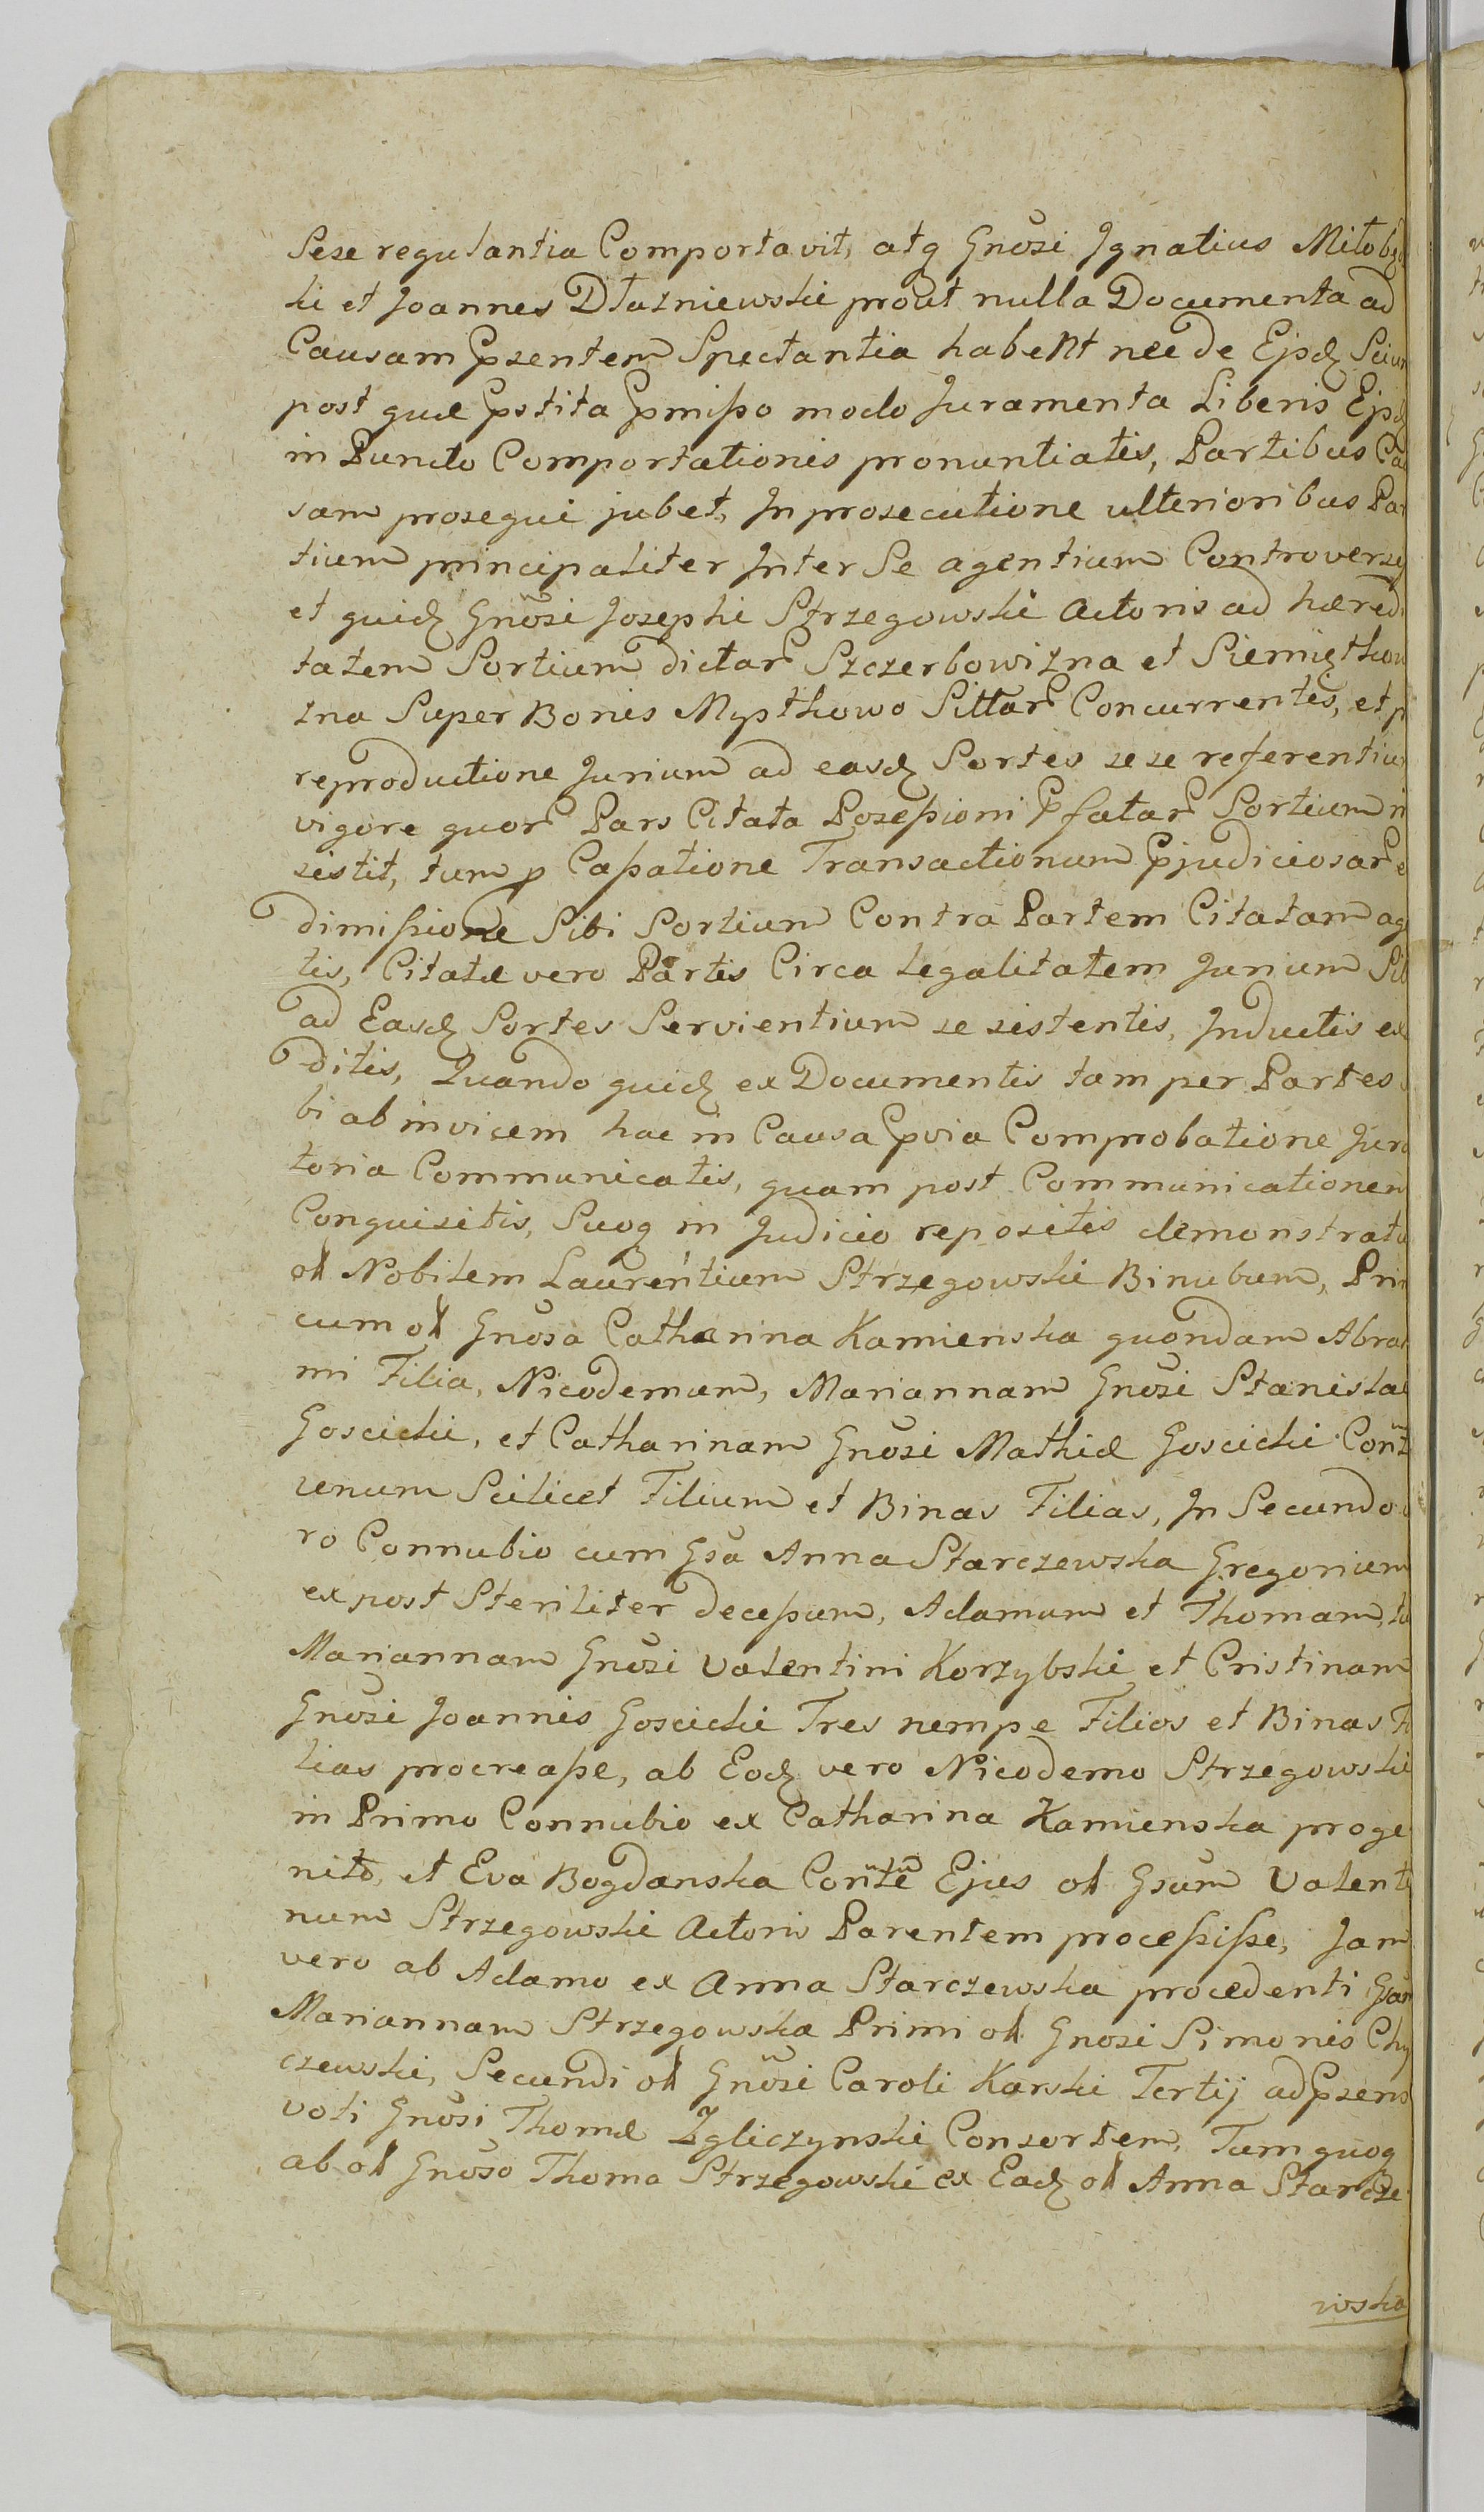 Sese regulantia Comportavit, atq Gnosi Ignatius Miłobędz
ki et Joannes Dłużniewski prout nulla Documenta ad
Causam Pzsentem Spectantia habent nec de Ejsd Sciun
post quæ Pstita Pmisso modo Juramenta Liberis Ejsd
in Puncto Comportationis pronuntiatis, Partibus Cau
sam prosequi jubet, In prosecutione ulterioribus Par
tium principaliter Inter Se agentium Controversij
et quid Gnosi Josephi Strzegowski Actoris ad hæredi
tatem Sortium dictar Szczerbowizna et Siemiętkow
zna Super Bonis Mystkowo Sittar Concurrentis, et p
reproductione Jurium ad easd Sortes sese referentium
vigore quor Pars Citata Possessioni Pfatar Sortium in
sistit, tum p Cassatione Transactionum Pjudiciosar e
dimissione Sibi Sortium Contra Partem Citatam ag
tis, Citatæ vero Partis Circa legalitatem Jurium Sib
ad Easd Sortes Servientium se sistentis, Inductis ex
ditis, Quando quid ex Documentis tam per Partes
bi ab invicem hac in Causa Pvia Comprobatione Jura
toria Communicatis, quam post Communicationem
Conquisitis, Suoq in Judicio repositis demonstratu
ol Nobilem Laurentium Strzegowski Binubum, Prim
cum ol Gnosa Catharina Kamienska quondam Abra
mi Filia, Nicodemum, Mariannam Gnosi Stanislai
Goscicki, et Catharinam Gnosi Mathiæ Goscicki Contz
unum Scilicet Filium et Binas Filias, In Secundo
ro Connubio cum Gsa Anna Starczewska Gregorium
expost Steriliter decessum, Adamum et Thomam, tu
Mariannam Gnosi Valentini Korzybski et Cristinam
Gnosi Joannis Goscicki Tres nempe Filios et Binas Fi
lias procreasse, ab Eod vero Nicodemo Strzegowski
in Primo Connubio ex Catharina Kamienska proge
nito, et Eva Bogdanska Conte Ejus ol Gsum Valenti
num Strzegowski Actoris Parentem processisse, Jam
vero ab Adamo ex Anna Starczewska procedenti Gsam
Mariannam Strzegowska Primi ol Gnosi Simonis Chy
czewski, Secundi ol Gnosi Caroli Karski Tertij ad Psens
voti Gnosi Thomæ Zgliczynski Consortem, Tum quoq
ab ol Gnoso Thoma Strzegowski ex Ead ol Anna Starcze
wska